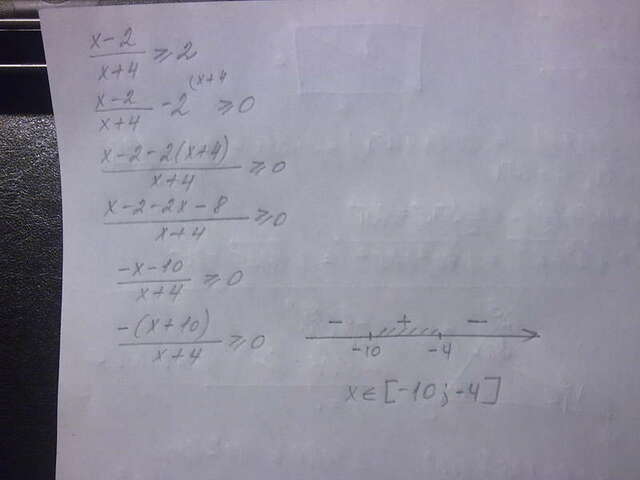 x-2/x+4 ⩾ 2
x-2/x+4 - 2 (x+4 ⩾ 0
x-2-2(x+4)/x+4 ⩾ 0
x-2-2x-8/x+4 ⩾ 0
-x-10/x+4 ⩾ 0
-(x+10)/x+4 ⩾ 0
- + -
-10 -4
x ∈ [-10; -4]